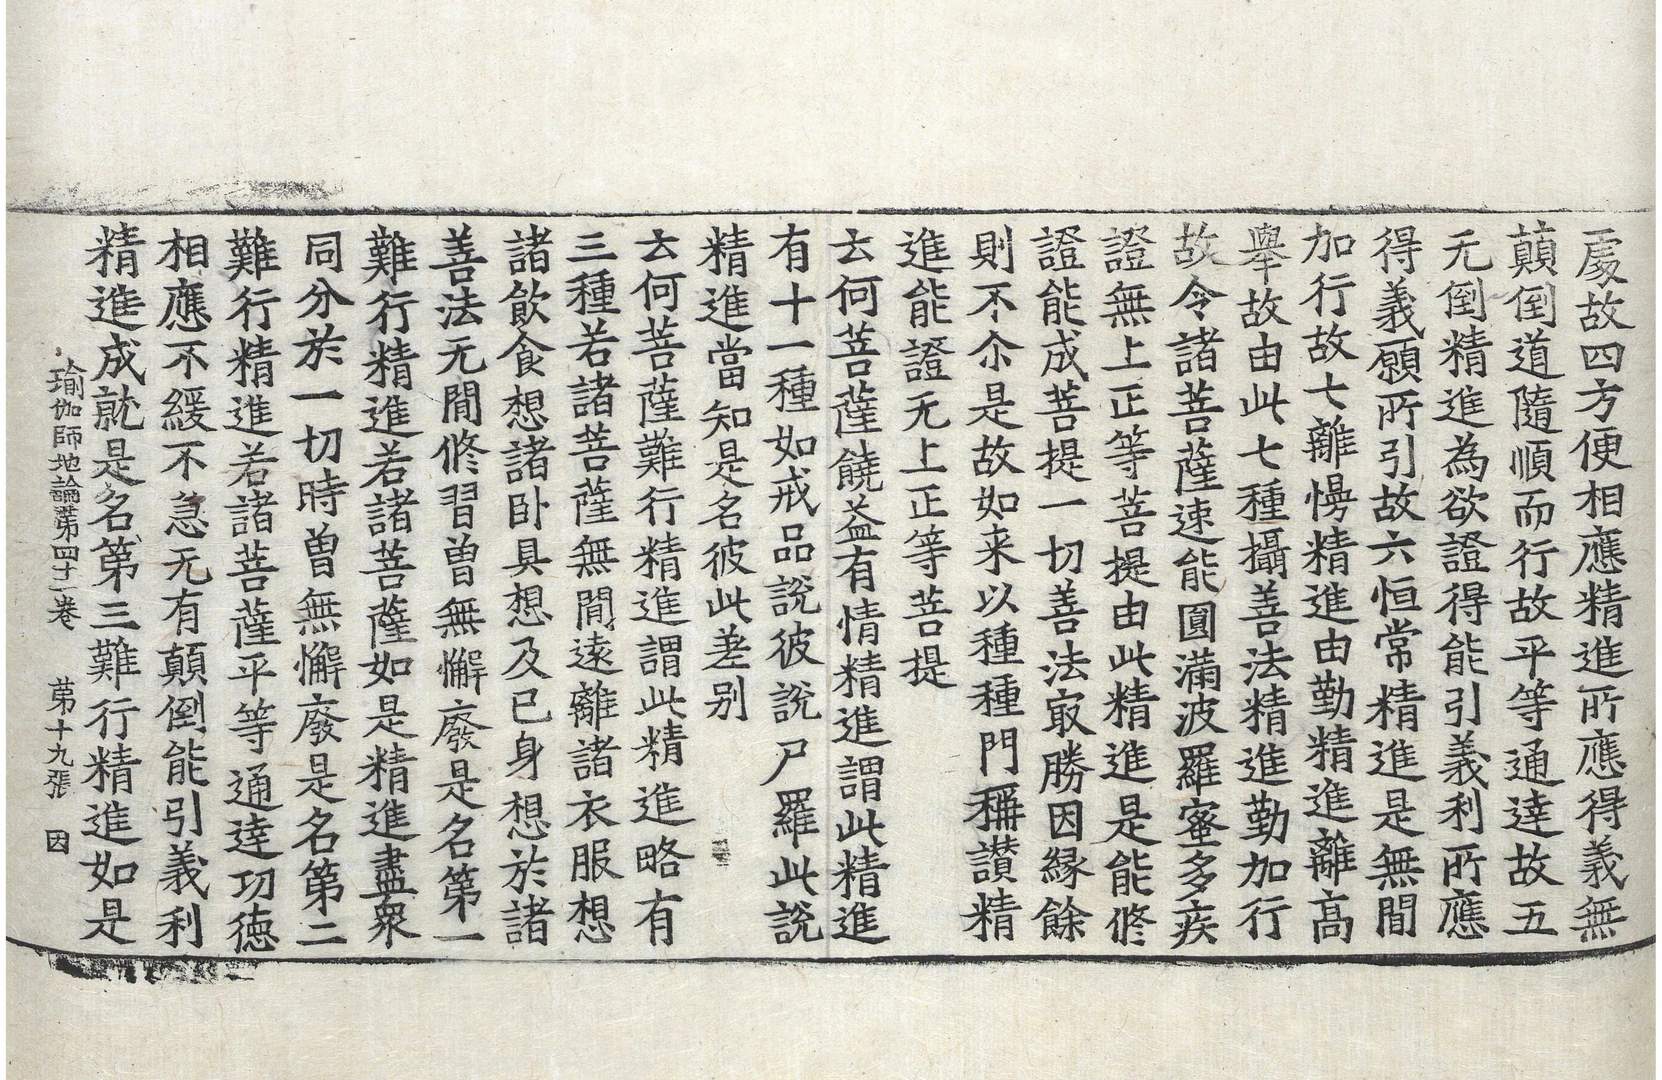 處故四方便相應精進所應得義無
顛倒道隨順而行故平等通達故五
无倒精進為欲證得能引義利所應
得義願所引故六恒常精進是無間
加行故七離慢精進由勤精進離高
舉故由此七種攝善法精進勤加行
故令諸菩薩速能圓滿波羅蜜多疾
證無上正等菩提由此精進是能修
證能成菩提一切善法㝡勝因緣餘
則不尒是故如来以種種門稱讃精
進能證无上正等菩提
云何菩薩饒益有情精進謂此精進
有十一種如戒品說彼說尸羅此說
精進當知是名彼此差别
云何菩薩難行精進謂此精進略有
三種若諸菩薩無間遠離諸衣服想
諸飲食想諸卧具想及已身想於諸
善法无間修習曾無懈廢是名第一
難行精進若諸菩薩如是精進盡衆
同分於一切時曾無懈廢是名第二
難行精進若諸菩薩平等通達功德
相應不緩不急无有顛倒能引義利
精進成就是名第三難行精進如是
瑜伽師地論第四十二卷 第十九張 因